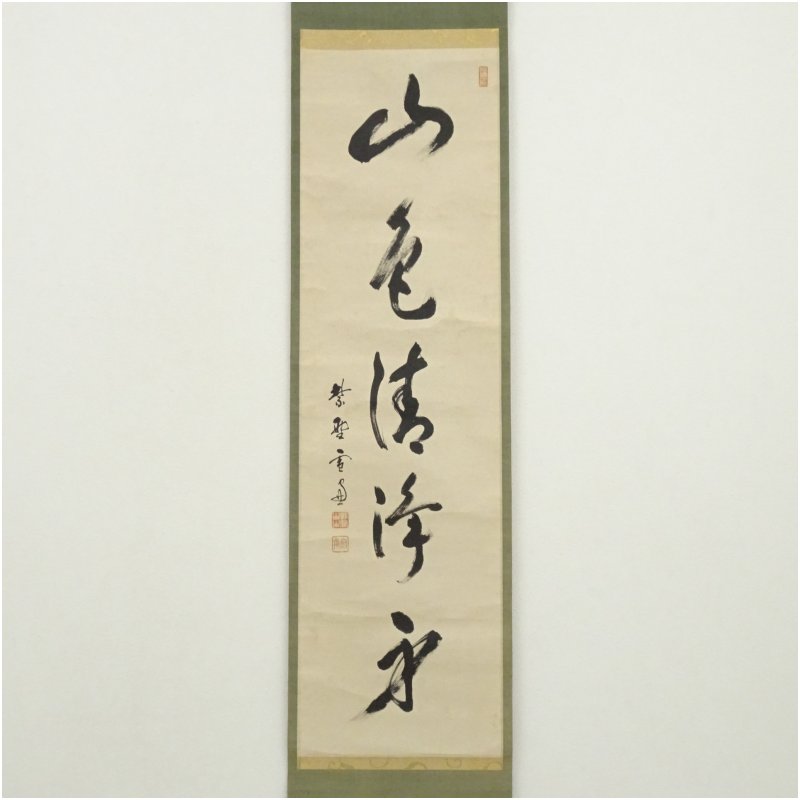 山色清浄身
紫野雪